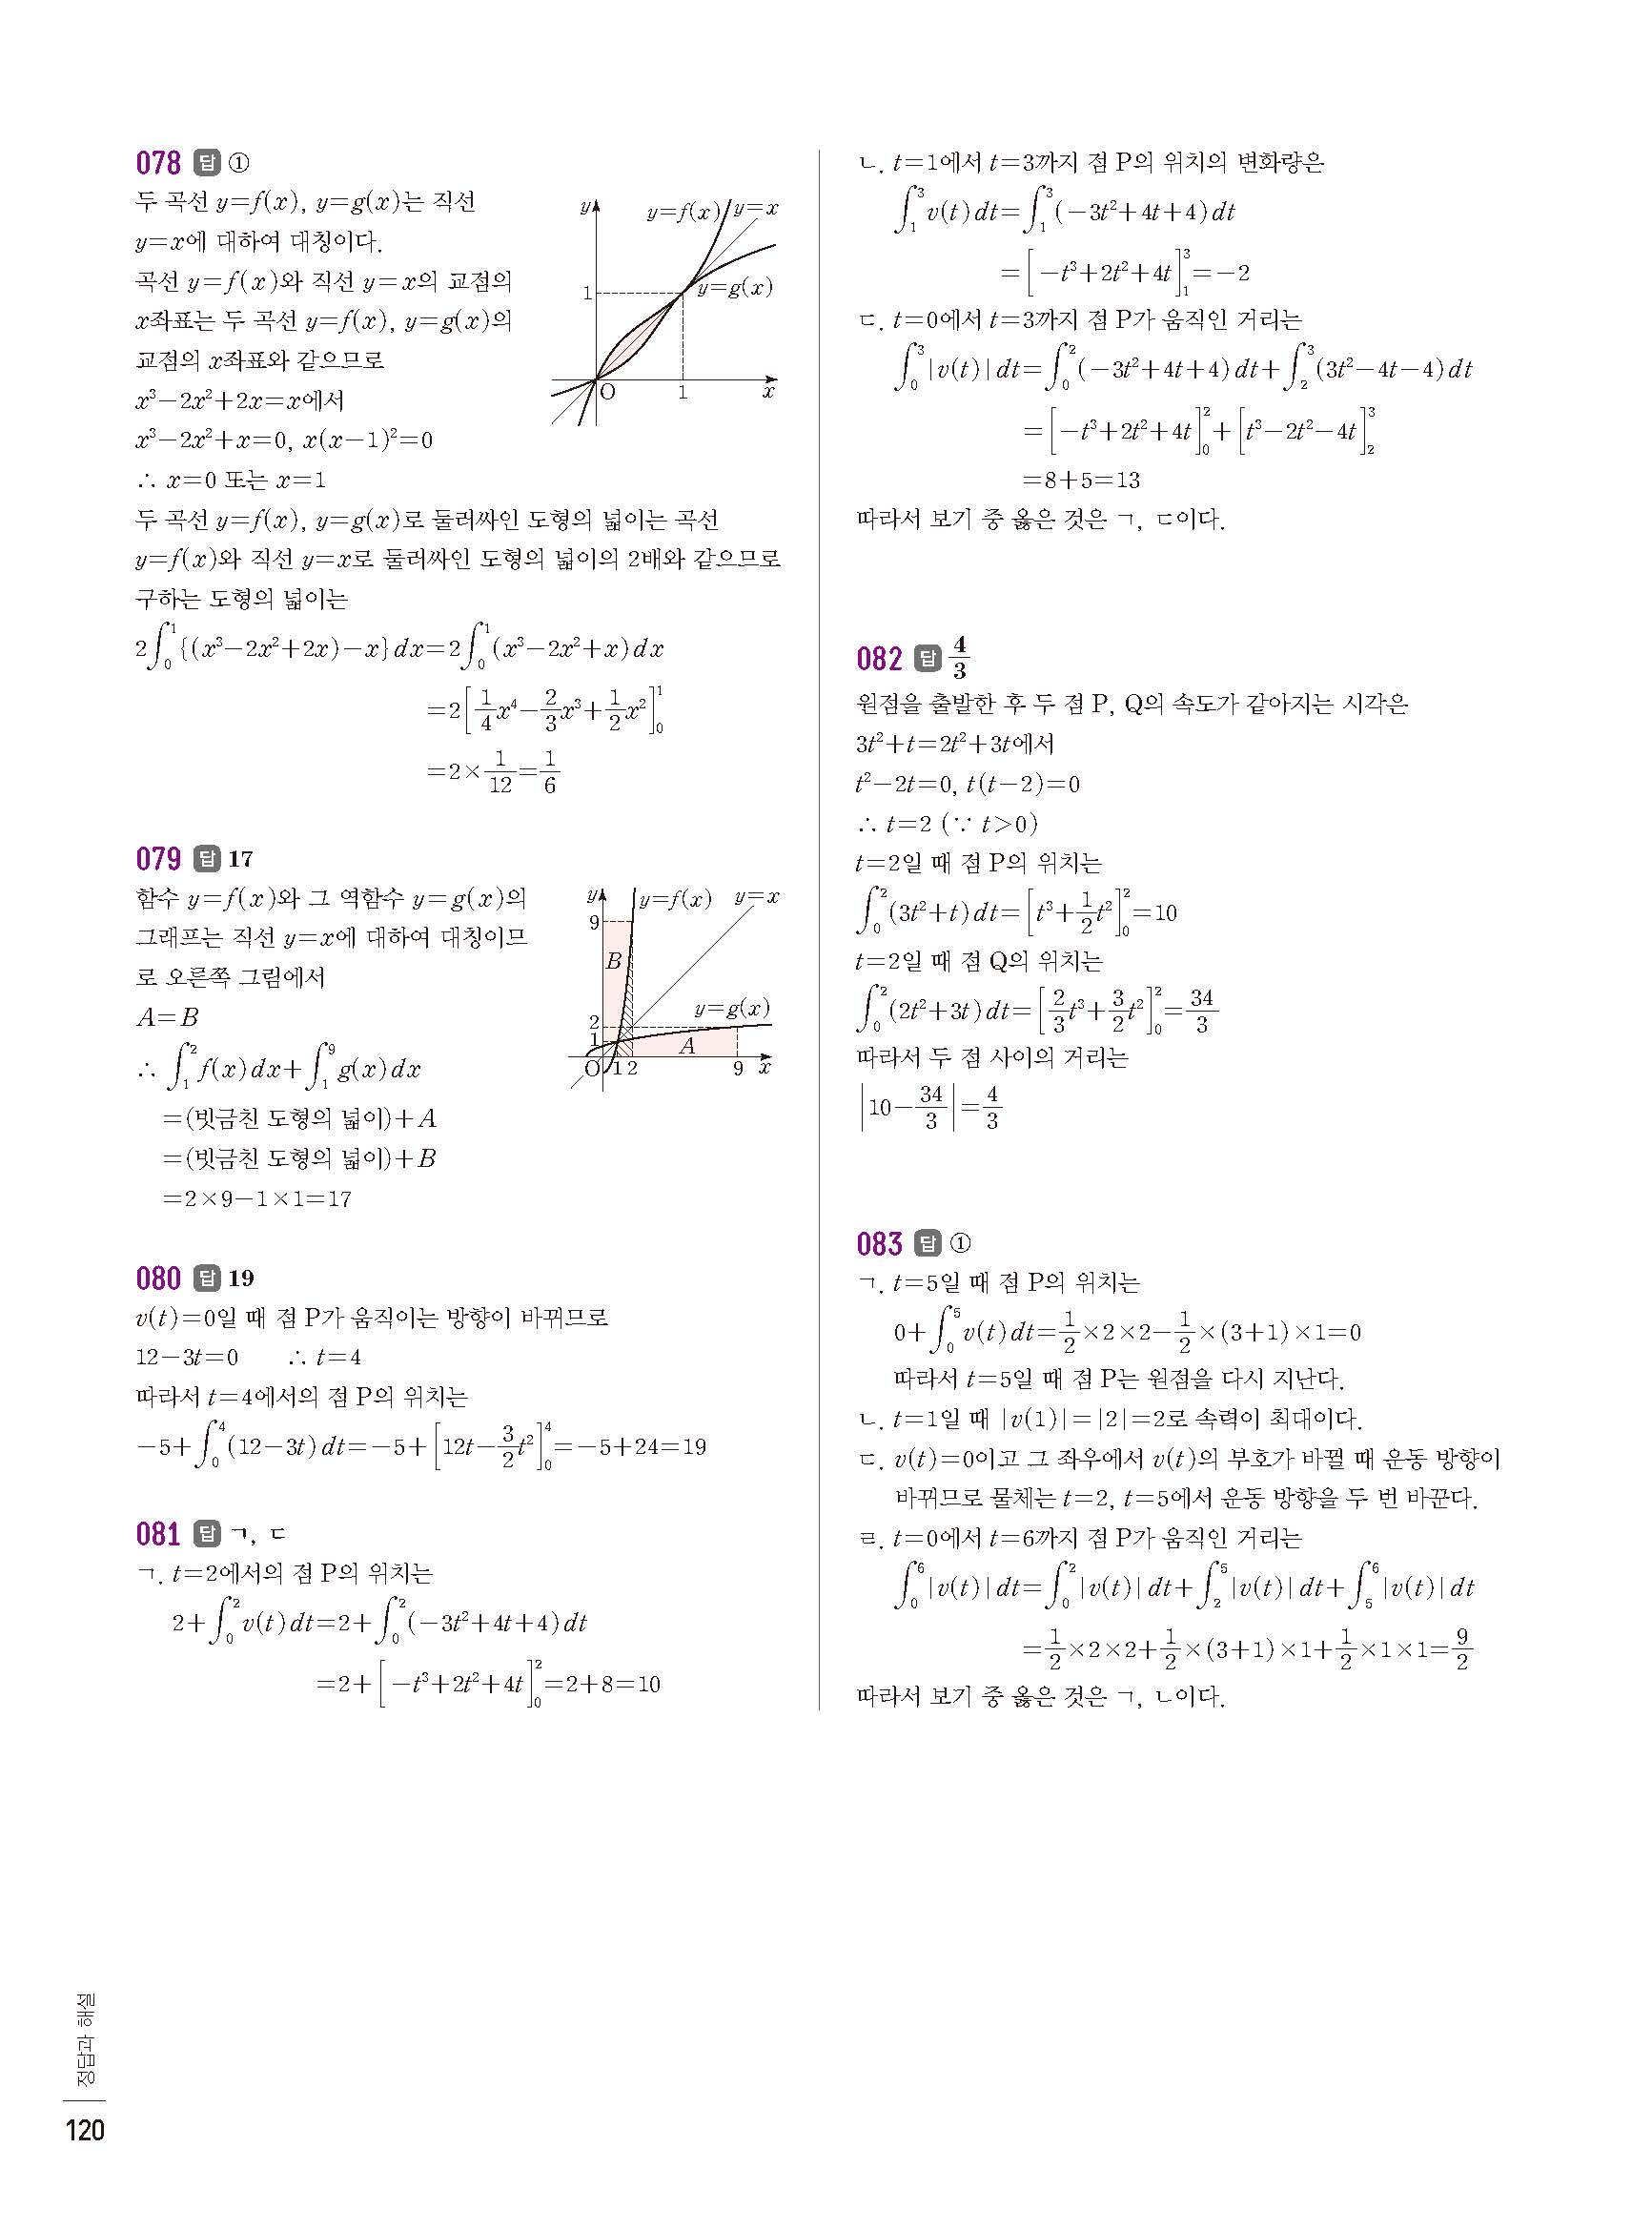 078 답 ①
두 곡선 y=f(x), y=g(x)는 직선
y=x에 대하여 대칭이다.
곡선 y=f(x)와 직선 y=x의 교점의
x좌표는 두 곡선 y=f(x), y=g(x)의
교점의 x좌표와 같으므로
x³-2x²+2x=x에서
x³-2x²+x=0, x(x-1)²=0
∴ x=0 또는 x=1
y
y=f(x)
y=x
y=g(x)
1
O
1
x
두 곡선 y=f(x), y=g(x)로 둘러싸인 도형의 넓이는 곡선
y=f(x)와 직선 y=x로 둘러싸인 도형의 넓이의 2배와 같으므로
구하는 도형의 넓이는
2∫₀¹{(x³-2x²+2x)-x}dx=2∫₀¹(x³-2x²+x)dx
=2[1/4x⁴-2/3x³+1/2x²]₀¹
=2×1/12=1/6
079 답 17
함수 y=f(x)와 그 역함수 y=g(x)의
그래프는 직선 y=x에 대하여 대칭이므
로 오른쪽 그림에서
A=B
∴ ∫₁²f(x)dx+∫₁⁹g(x)dx
=(빗금친 도형의 넓이)+A
=(빗금친 도형의 넓이)+B
=2×9-1×1=17
y
y=f(x)
y=x
9
B
y=g(x)
2
1
A
O
1 2
9
x
080 답 19
v(t)=0일 때 점 P가 움직이는 방향이 바뀌므로
12-3t=0 ∴ t=4
따라서 t=4에서의 점 P의 위치는
-5+∫₀⁴(12-3t)dt=-5+[12t-3/2t²]₀⁴=-5+24=19
081 답 ㄱ, ㄷ
ㄱ. t=2에서의 점 P의 위치는
2+∫₀²v(t)dt=2+∫₀²(-3t²+4t+4)dt
=2+[-t³+2t²+4t]₀²=2+8=10
ㄴ. t=1에서 t=3까지 점 P의 위치의 변화량은
∫₁³v(t)dt=∫₁³(-3t²+4t+4)dt
=[-t³+2t²+4t]₁³=-2
ㄷ. t=0에서 t=3까지 점 P가 움직인 거리는
∫₀³|v(t)|dt=∫₀²(-3t²+4t+4)dt+∫₂³(3t²-4t-4)dt
=[-t³+2t²+4t]₀²+[t³-2t²-4t]₂³
=8+5=13
따라서 보기 중 옳은 것은 ㄱ, ㄷ이다.
082 답 4/3
원점을 출발한 후 두 점 P, Q의 속도가 같아지는 시각은
3t²+t=2t²+3t에서
t²-2t=0, t(t-2)=0
∴ t=2 (∵ t>0)
t=2일 때 점 P의 위치는
∫₀²(3t²+t)dt=[t³+1/2t²]₀²=10
t=2일 때 점 Q의 위치는
∫₀²(2t²+3t)dt=[2/3t³+3/2t²]₀²=34/3
따라서 두 점 사이의 거리는
|10-34/3|=4/3
083 답 ①
ㄱ. t=5일 때 점 P의 위치는
0+∫₀⁵v(t)dt=1/2×2×2-1/2×(3+1)×1=0
따라서 t=5일 때 점 P는 원점을 다시 지난다.
ㄴ. t=1일 때 |v(1)|=|2|=2로 속력이 최대이다.
ㄷ. v(t)=0이고 그 좌우에서 v(t)의 부호가 바뀔 때 운동 방향이
바뀌므로 물체는 t=2, t=5에서 운동 방향을 두 번 바꾼다.
ㄹ. t=0에서 t=6까지 점 P가 움직인 거리는
∫₀⁶|v(t)|dt=∫₀²|v(t)|dt+∫₂⁵|v(t)|dt+∫₅⁶|v(t)|dt
=1/2×2×2+1/2×(3+1)×1+1/2×1×1=9/2
따라서 보기 중 옳은 것은 ㄱ, ㄴ이다.
정답과 해설
120